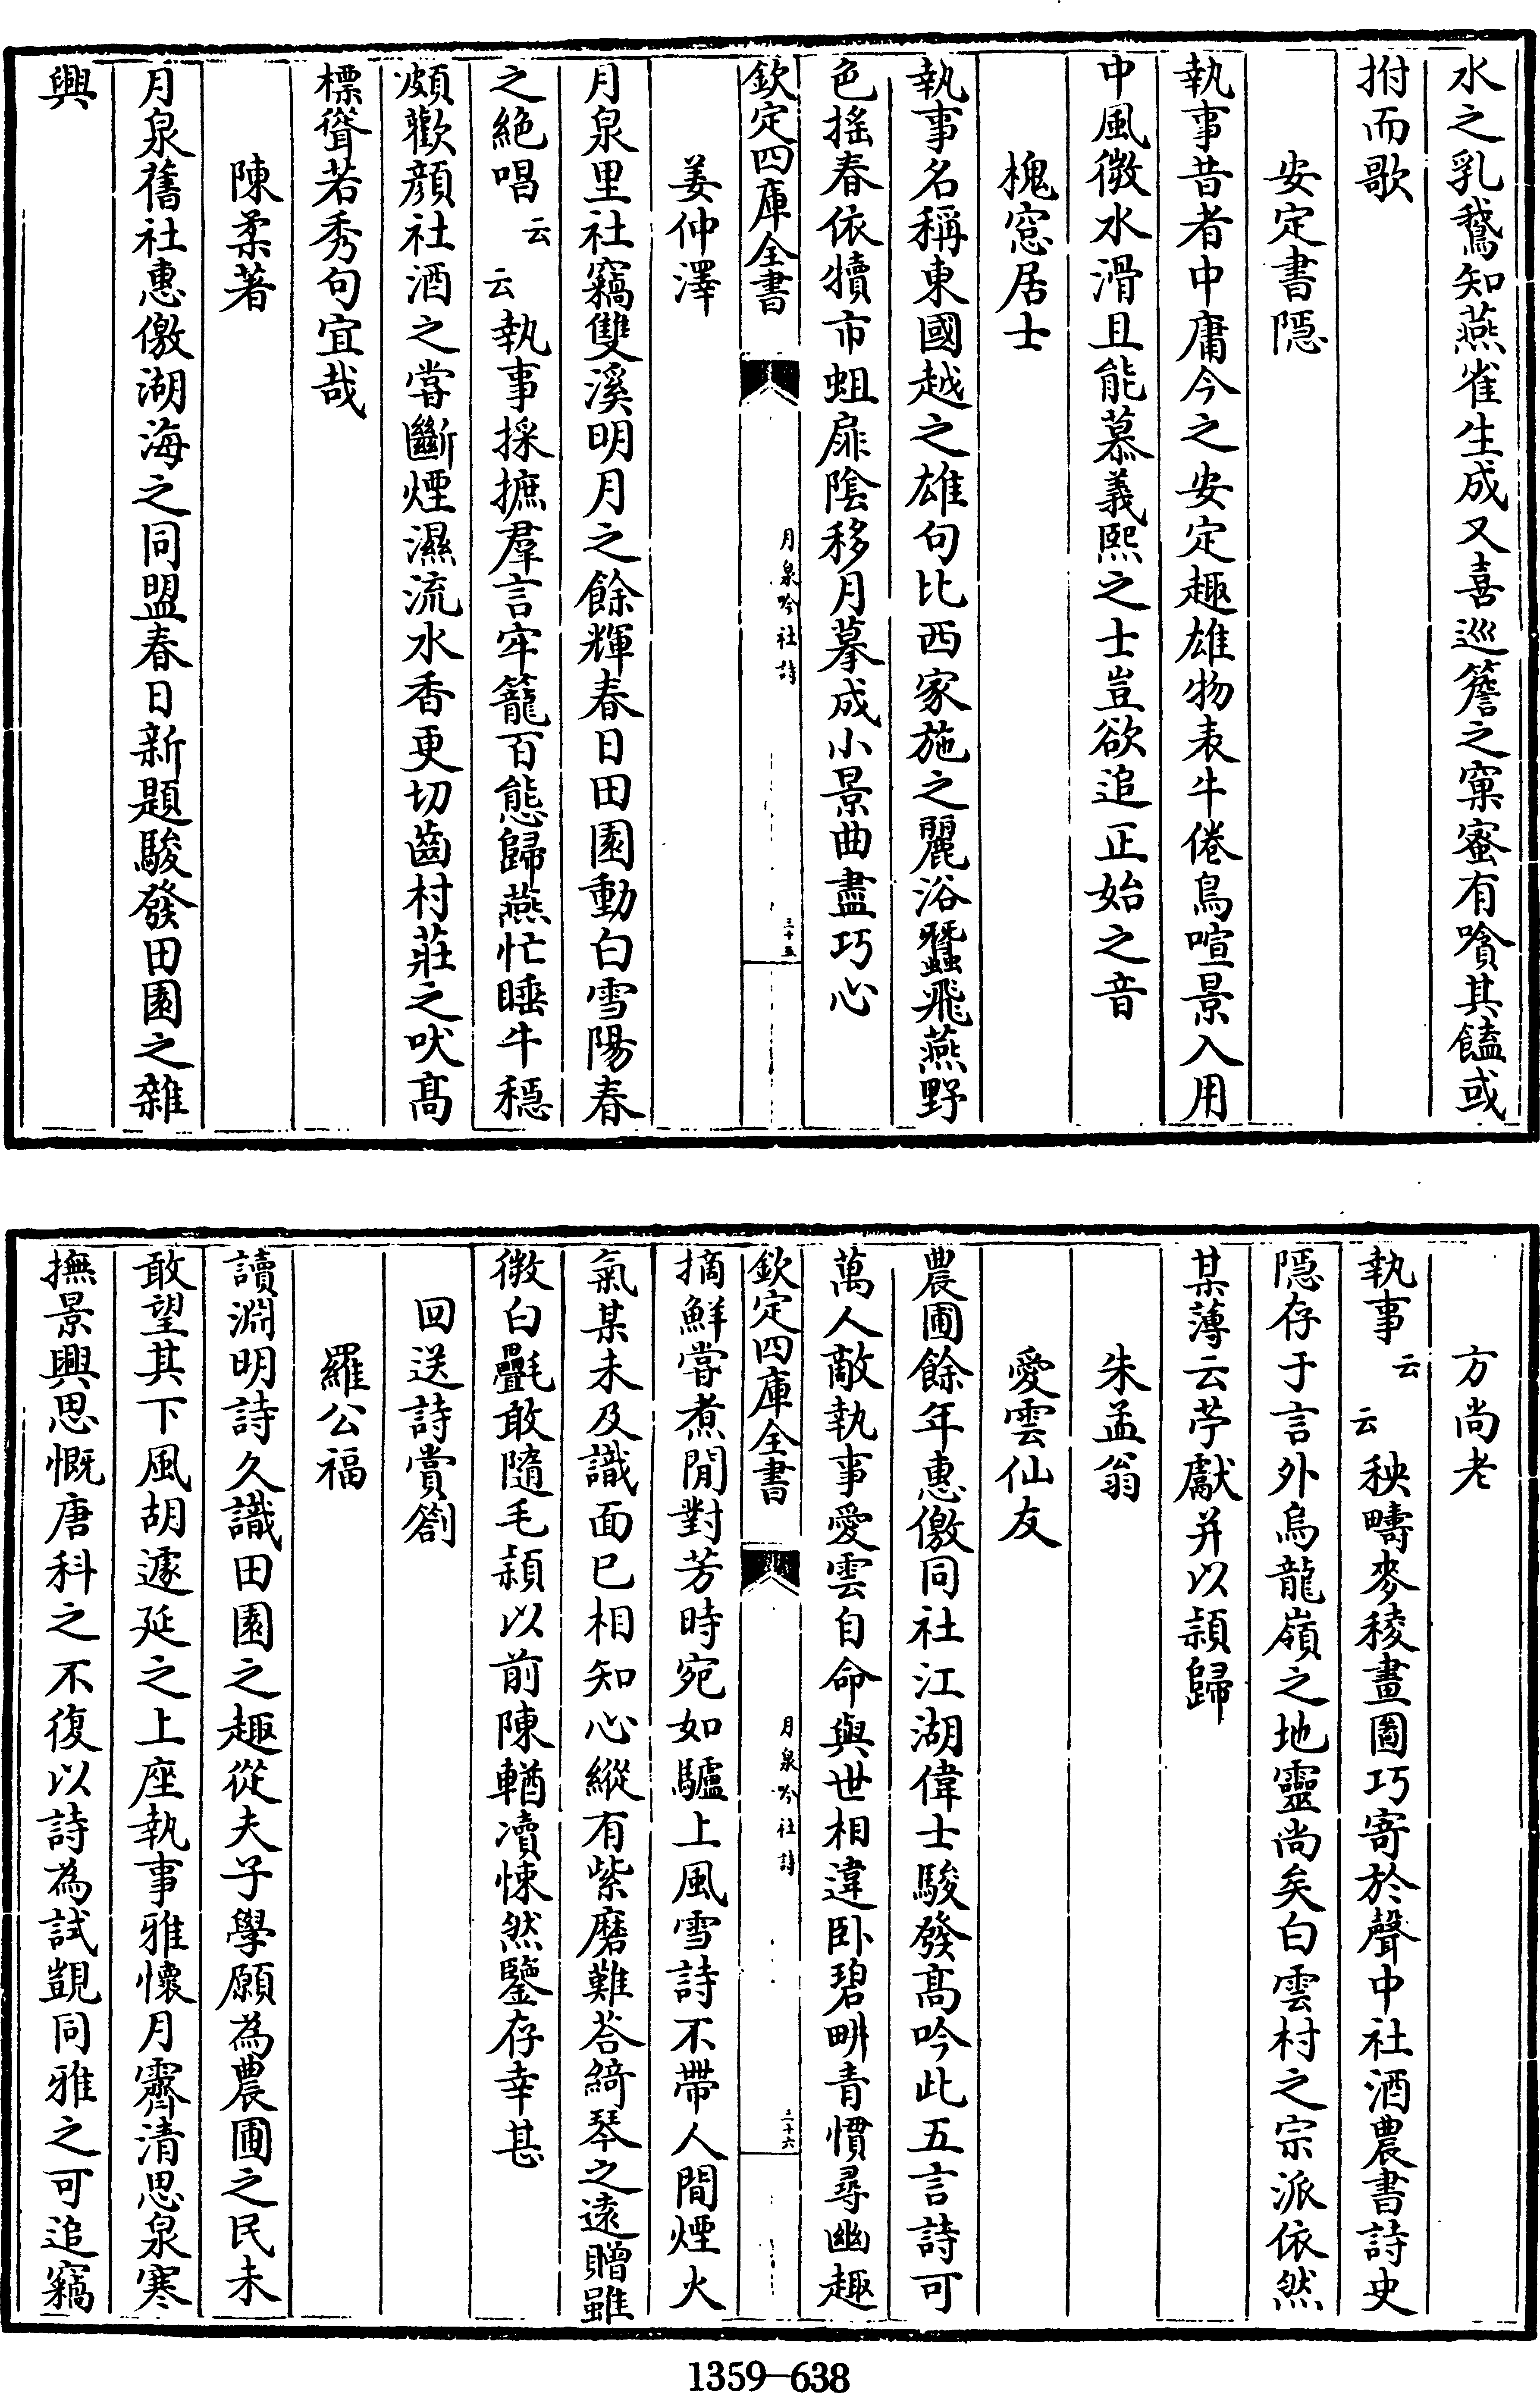 水之乳鵞知燕雀生成又喜巡簷之窠蜜有噏其饁或
拊而歌
安定書隠
執事昔者中庸今之安定趣雄物表牛倦鳥喧景入用
中風微水滑且能慕義熙之士豈欲追正始之音
槐窓居士
執事名稱東國越之雄句比西家施之麗浴蠶飛燕野
色揺春依犢市蛆扉陰移月摹成小景曲盡巧心
欽定四庫全書
月泉吟社詩
三十五
姜仲澤
月泉里社竊雙溪明月之餘輝春日田園動白雪陽春
之絶唱云云執事採摭羣言牢籠百態歸燕忙睡牛穏
頗歡顔社酒之甞斷煙濕流水香更切齒村莊之吠髙
標聳若秀句宜哉
陳柔著
月泉舊社惠儌湖海之同盟春日新題駿發田園之雜
興
方尚老
執事云云秧疇麥稜畫圖巧寄於聲中社酒農書詩史
隠存于言外烏龍嶺之地靈尚矣白雲村之宗派依然
某薄云苧獻并以頴歸
朱孟翁
愛雲仙友
農圃餘年惠儌同社江湖偉士駿發髙吟此五言詩可
萬人敵執事愛雲自命與世相違卧碧畊青慣尋幽趣
欽定四庫全書
月泉吟社詩
三十六
摘鮮嘗煮閒對芳時宛如驢上風雪詩不帶人間煙火
氣某未及識面已相知心縱有紫磨難荅綺琴之逺贈雖
微白氎敢隨毛頴以前陳輶凟悚然鑒存幸甚
回送詩賞劄
羅公福
讀淵明詩久識田園之趣從夫子學願為農圃之民未
敢望其下風胡遽延之上座執事雅懐月霽清思泉寒
撫景興思慨唐科之不復以詩為試覬同雅之可追竊
1359—638